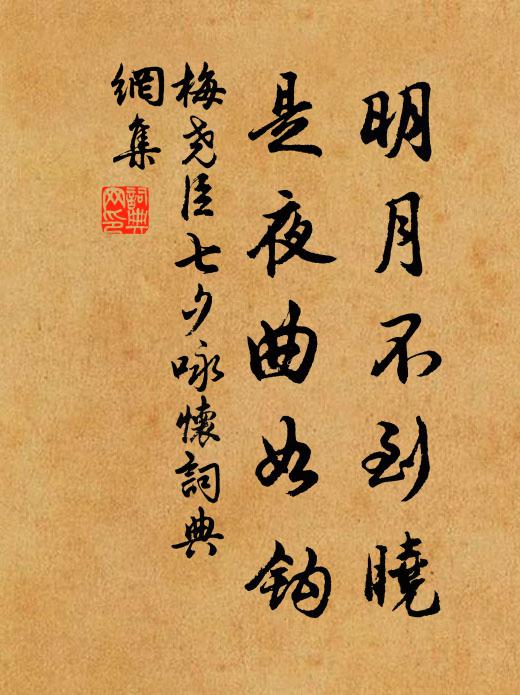 明月不到曉
是夜曲如鈎
梅堯臣七夕咏懷詞典
網集
詞典
网印